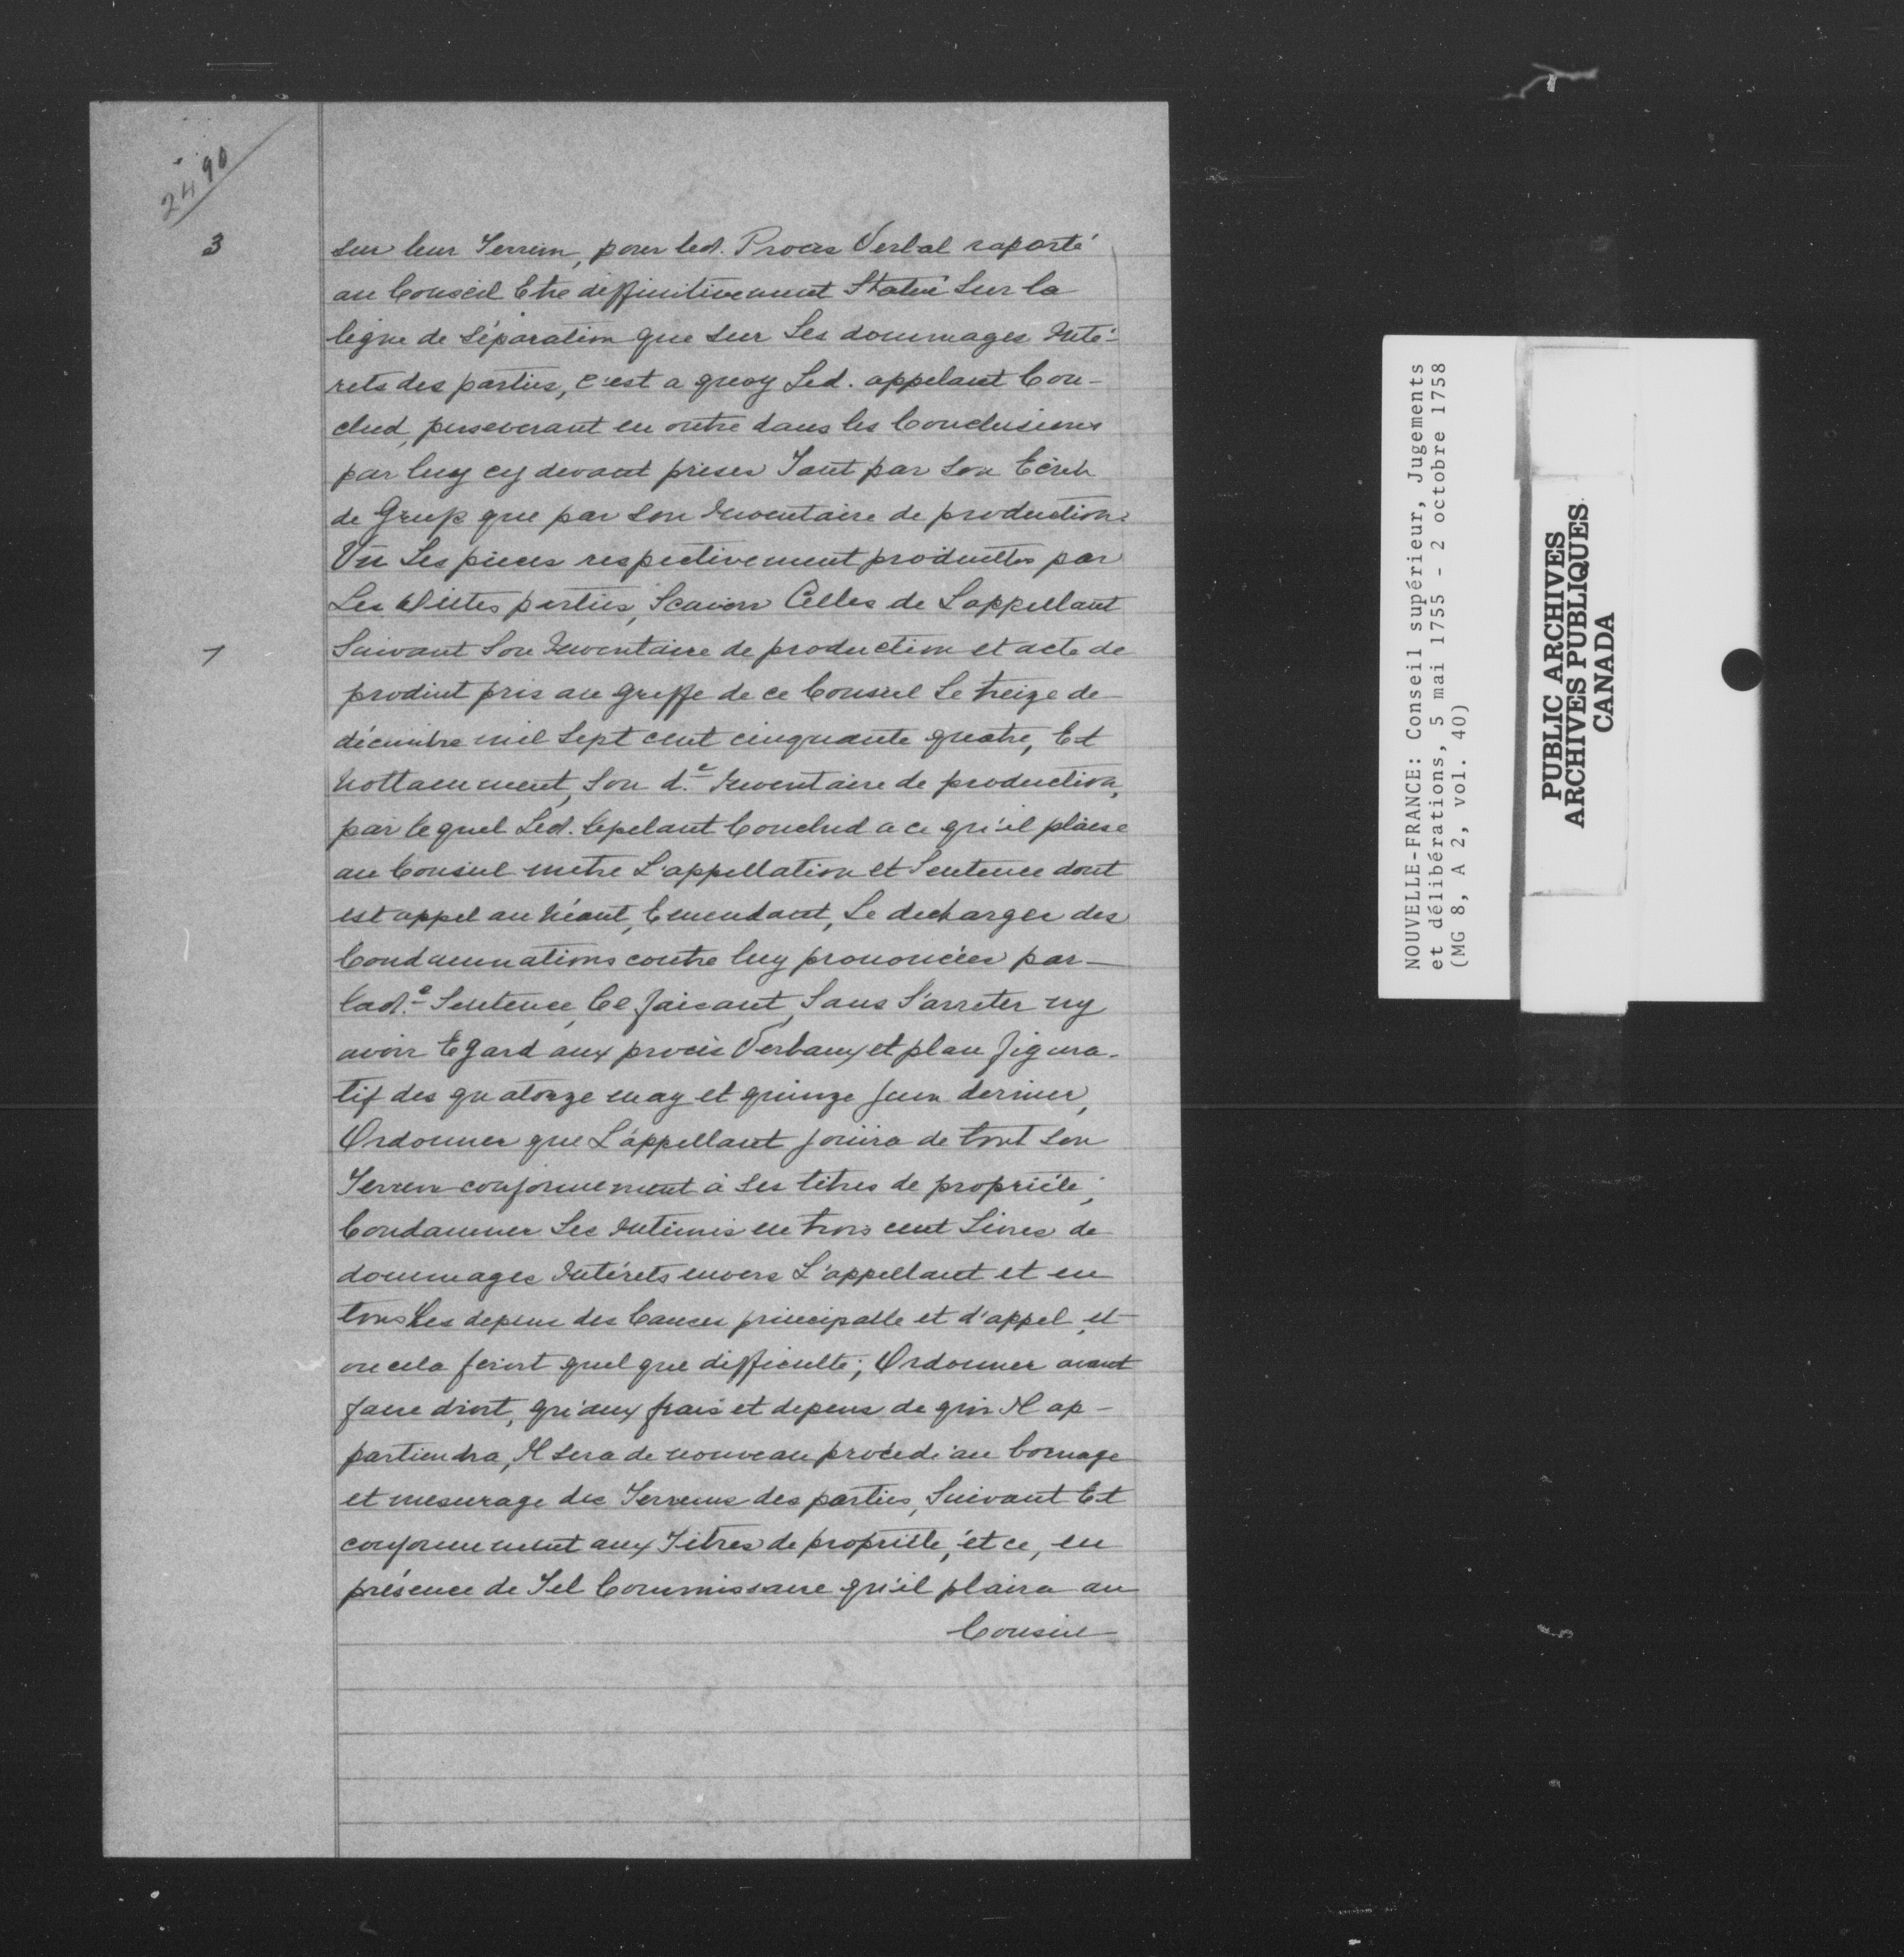 2490
3
sur leur Terrein, pour led. Procès Verbal raporté
au Conseil Etre diffinitivement Statué Sur la
ligne de Séparation que sur Les dommages Inté-
rets des parties, c'est a quoy Led. appelant Con-
clud, perseverant en outre dans les Conclusions
par luy cy devant prises Tant par Son Ecrit
de Grief que par Son Inventaire de production.
Vu Les pieces respectivement produittes par
Les dittes parties, Scavoir Celles de L'appellant
1
Suivant Son Inventaire de production et acte de
produit pris au greffe de ce Conseil Le treize de
décembre mil Sept cent cinquante quatre, Et
Nottamment, Son d.e Inventaire de production,
par lequel Led. apelant Conclud a ce qu'il plaise
au Conseil metre L'appellation et Sentence dont
est appel au Néant, Emendant, Le decharger des
Condamnations contre luy prononcées par
lad.e Sentence, Ce faisant, Sans S'arreter ny
avoir Egard aux procès Verbaux et plan figura-
tif des quatorze may et quinze Juin dernier,
Ordonner que L'appellant Jouira de tout Son
Terrein conformement à Ses titres de propriété;
Condamner Les Intimés en trois cent Livres de
dommages Intérets envers L'appellant et en
tous Les depens des Causes principalle et d'appel, et
ou cela feroit quelque difficulté; Ordonner avant
faire droit, qu'aux frais et depens de qui Il ap-
partiendra, Il sera de nouveau procédé au bornage
et mesurage des Terreins des parties, Suivant Et
conformement aux Titres de propriété, et ce, en
présence de Tel Commissaire qu'il plaira au
Conseil
NOUVELLE-FRANCE: Conseil supérieur, Jugements
et délibérations, 5 mai 1755 - 2 octobre 1758
(MG 8, A 2, vol. 40)
PUBLIC ARCHIVES
ARCHIVES PUBLIQUES
CANADA